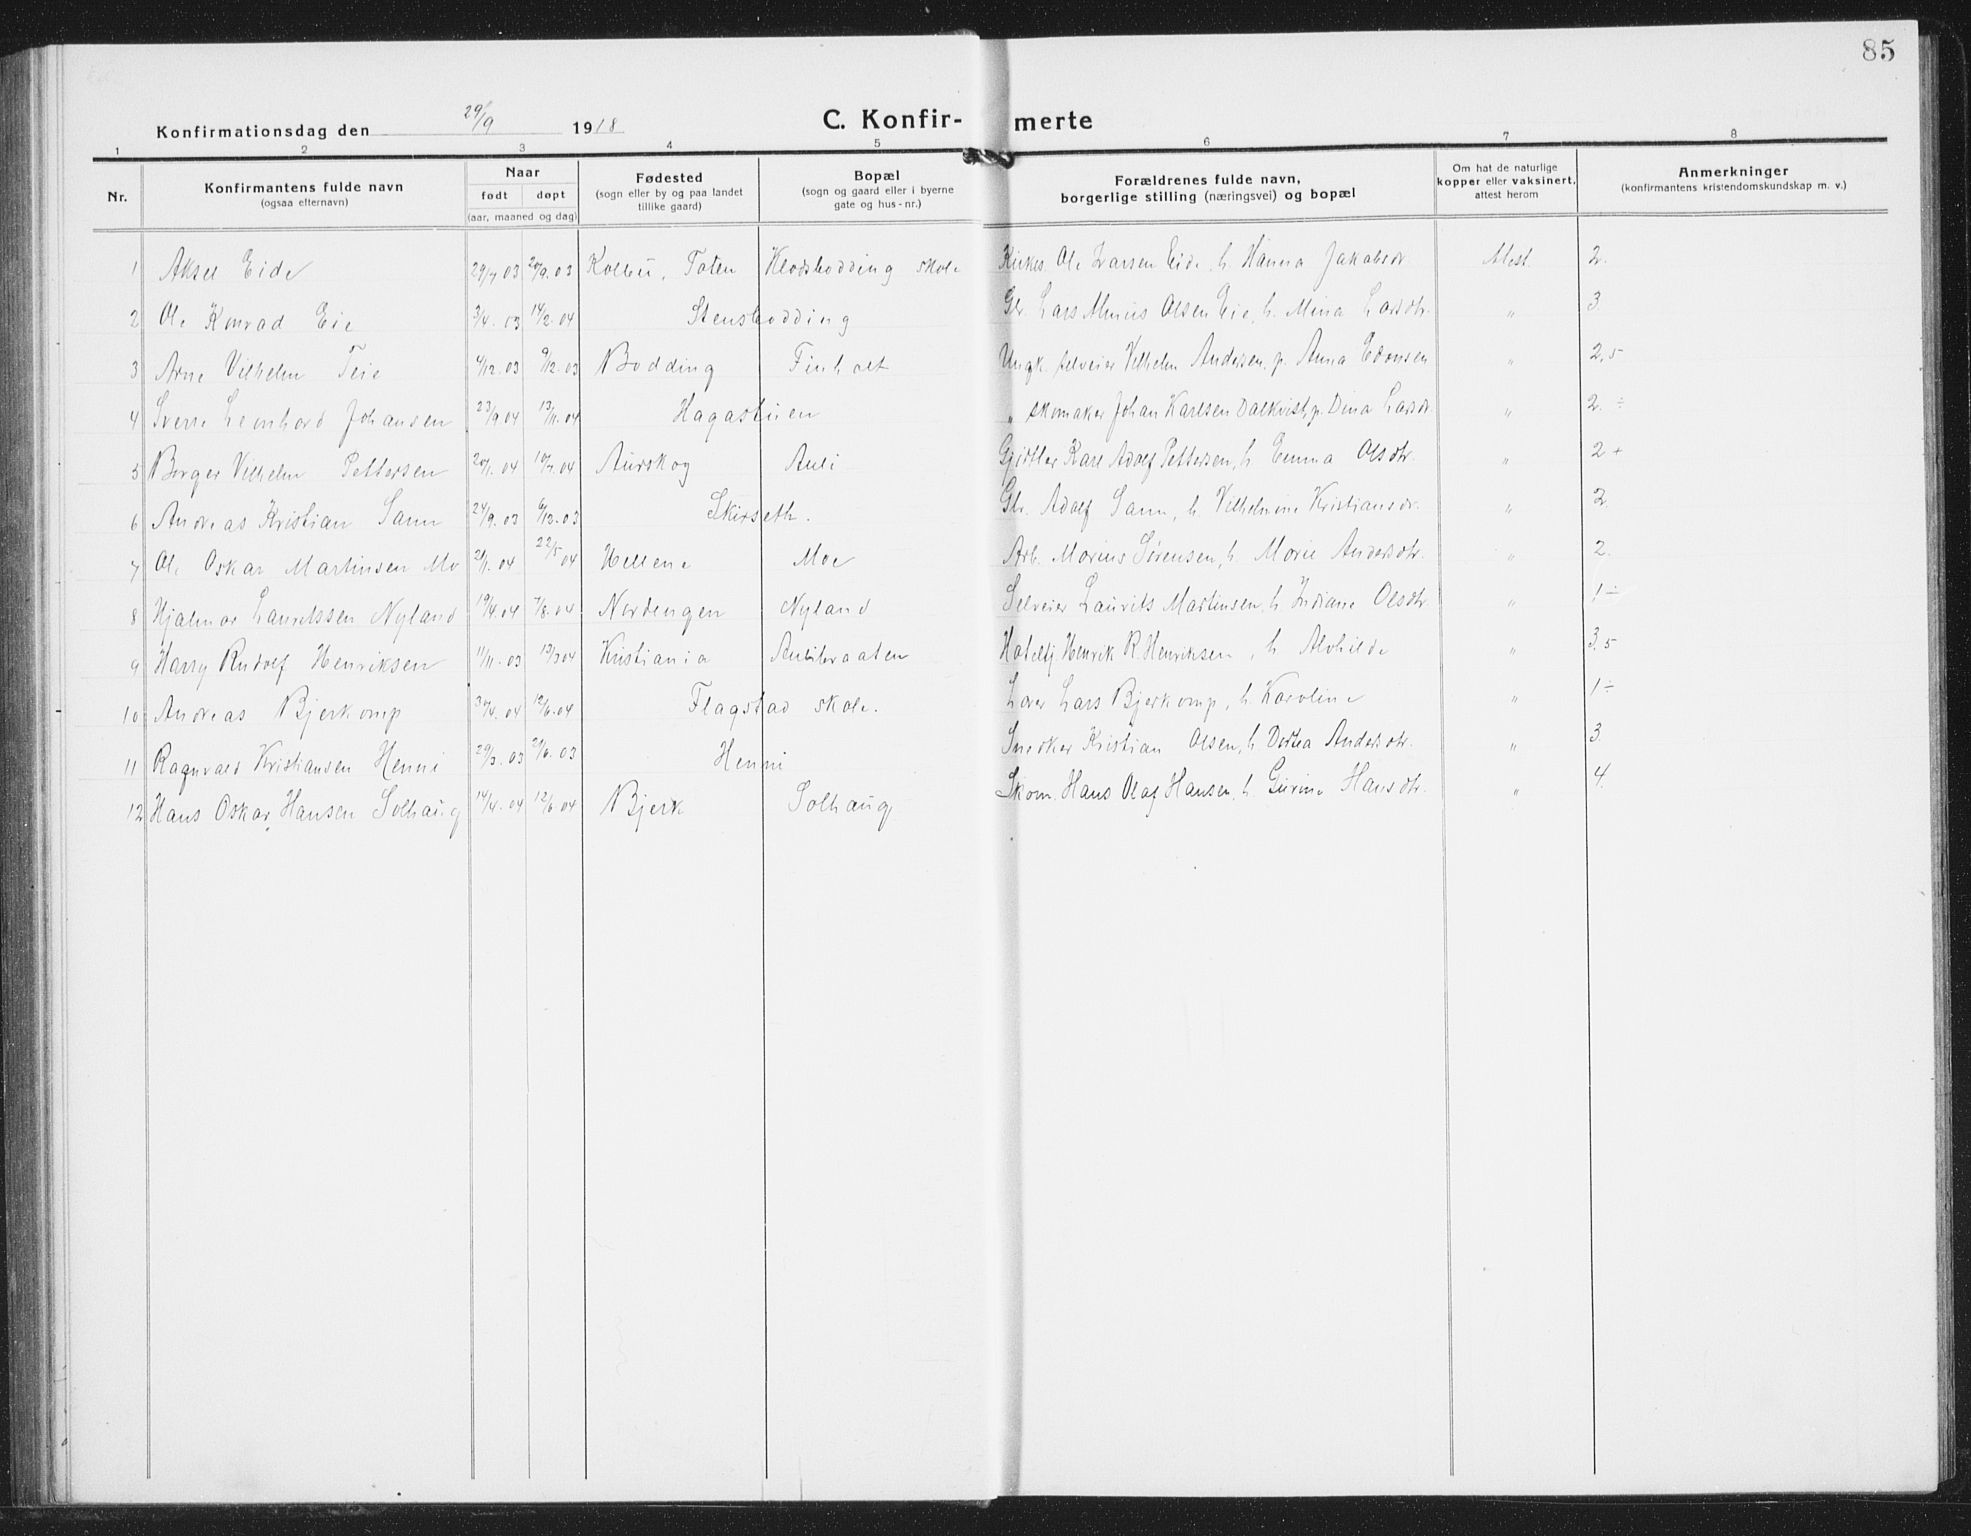 85
Konfirmationsdag den 29/9 1918
C. Konfir- merte
1 2 3 4 5 6 7 8
Nr. Konfirmantens fulde navn (ogsaa efternavn) Naar født døpt (aar, maaned og dag) Fødested (sogn eller by og paa landet tillike gaard) Bopæl (sogn og gaard eller i byerne gate og hus-nr.) Forældrenes fulde navn, borgerlige stilling (næringsvei) og bopæl Om hat de naturlige kopper eller vaksinert, attest herom Anmerkninger (konfirmantens kristendomskundskap m. v.)
1 Aksel Eide 29/7 03 20/9 03 Kolbu, Toten skole Kirkes. Ole Larsen Eide, h. Hanna Jakobsdr. Atest. 2.
2 Ole Konrad Eie 3/4. 03 14/2. 04 Stensbødding Lars Minius Olsen Eie, h. Mina Larsdtr. " 3.
3 Arne Vilhelm Teie 4/12. 03 9/12. 03 Bødding Finholt Ungk. selveier Vilhelm Andersen, p. Anna Edvinsen " 2,5
4 Sverre Leonhard Johansen 23/9 04 13/11. 04 Hagastuen " skomaker Johan Karlsen Dalkvist, p. Dina Larsdr. " 2. ÷
5 Borger Vilhelm Pettersen 20/1. 04 10/7. 04 Aurskog Auli Karl Adolf Pettersen, h. Emma Olsdtr. " 2 +
6 Andreas Kristian Sann 24/9. 03 6/12. 03 Skirseth. Adolf Sann, h. Vilhelmine Kristiansdr. " 2
7 Ole Oskar Martinsen Mo 2/1. 04 22/5 04 Hellene Moe Arb. Morius Sørensen, h. Marie Andersdtr. " 2.
8 Hjalmar Lauritssen Nyland 19/4. 04 7/8. 04 Nordengen Nyland Selveier Laurits Martinsen, h. Indiane Olsdtr. " 1 ÷
9 Harry Rudolf Henriksen 11/11. 03 13/3 04 Kristiania Aulibraaten Henrik R. Henriksen, h. Alvhilde " 3,5
10 Andreas Bjerkomp 30/4. 04 12/6. 04 Flagstad skole. Lærer Lars Bjerkomp, h. Karoline " 1 ÷
11 Ragnvald Kristiansen Henni 29/3. 03 21/6. 03 Henni Snedker Kristian Olsen, h. Dortea Andersdtr. " 3.
12 Hans Oskar Hansen Solhaug 14/4. 04 12/6. 04 Bjerk Solhaug Skom. Hans Olaf Hansen, h. Gurine Hansdtr. " 4.